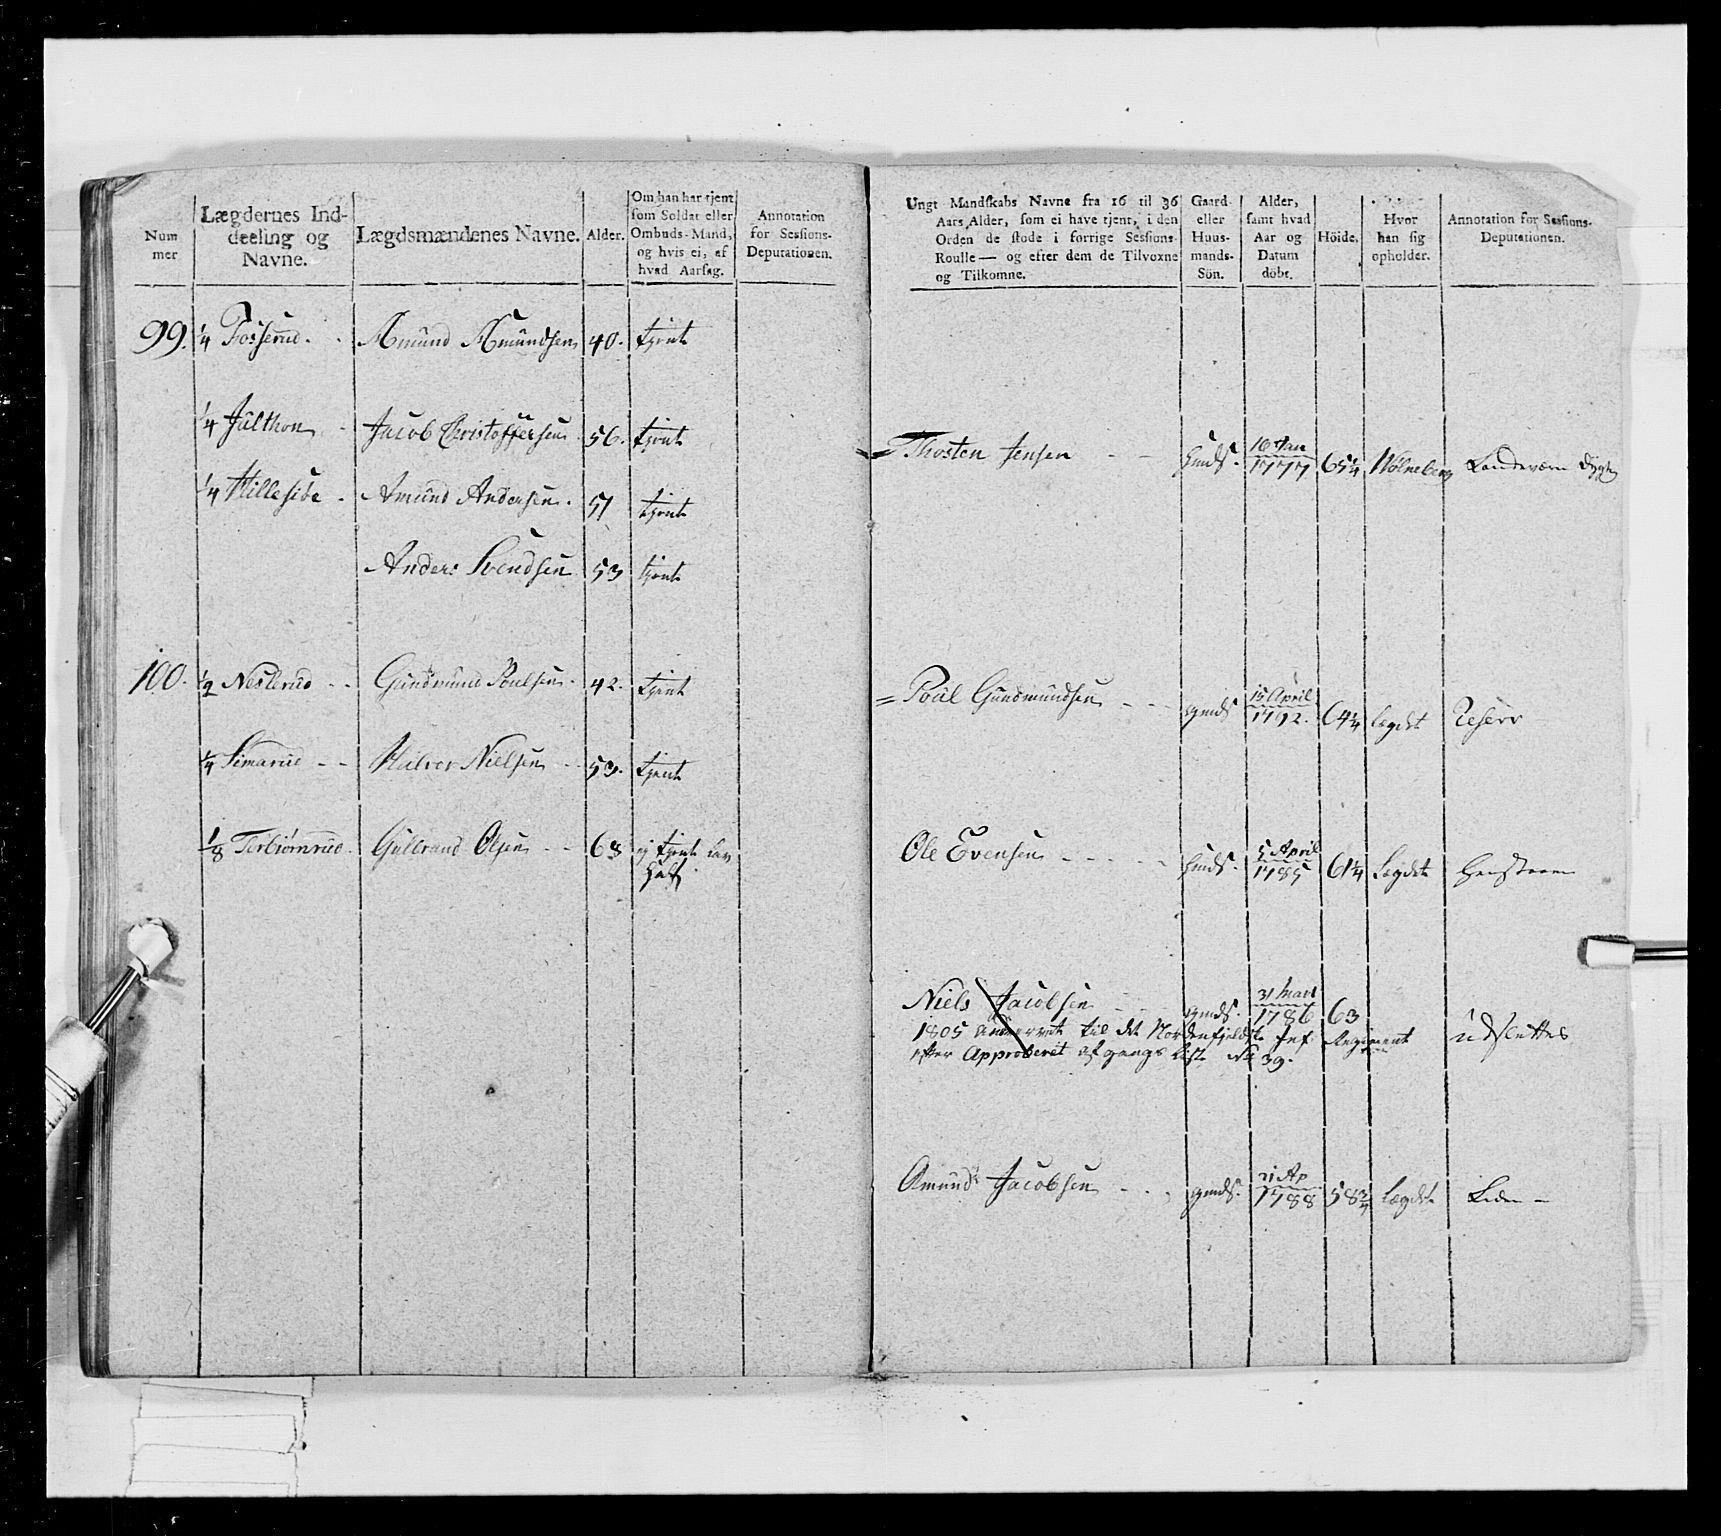 Num
mer
Lægdernes Ind-
deeling og
Navne.
Lægdsmændenes Navne.
Alder.
Om han har tjent
som Soldat eller
Ombuds-Mand,
og hvis ei, af
hvad Aarsag.
Annotation
for Sessions-
Deputationen.
99. 1/4 Fosserud. Amund Amundsen 40. tjent
1/4 Julthon Jacob Christoffersen 56. tjent
1/4 Hillesibe Amund Andersen. 51 tjent
Anders Svendsen 53 tjent
100. 1/2 Neslerud Gundmund Poulsen. 42. tjent
1/4 Simarud Halvor Nielsen 53. tjent
1/8 Torbiørnrud. Gulbrand Olsen 63 ej tjent
Ungt Mandskabs Navne fra 16 til 36
Aars Alder, som ei have tjent, i den
Orden de stode i forrige Sessions-
Roulle — og efter dem de Tilvoxne
og Tilkomne.
Gaard-
eller
Huus-
mands-
Sön.
Alder,
samt hvad
Aar og
Datum
döbt.
Höide.
Hvor
han sig
opholder.
Annotation for Sessions-
Deputationen.
= Thosten Jensen huuds. 10 Jan 1777 65 1/4 Landeværn dygtig
= Poul Gundmundsen gmds 15 April 1792. 64 1/4 Lægdet Reserv
Ole Evensen huuds. 5 April 1785 61 1/4 Lægdet
Niels Jacobsen gmds. 31 Mart 1786 63
1805 til det Nordenfjeldske Inf Regiment udslettes
efter Approberet afgangs List No 39.
Amund Jacobsen gmds. 21 Ap 1788 58 3/4 Lægdet Liden